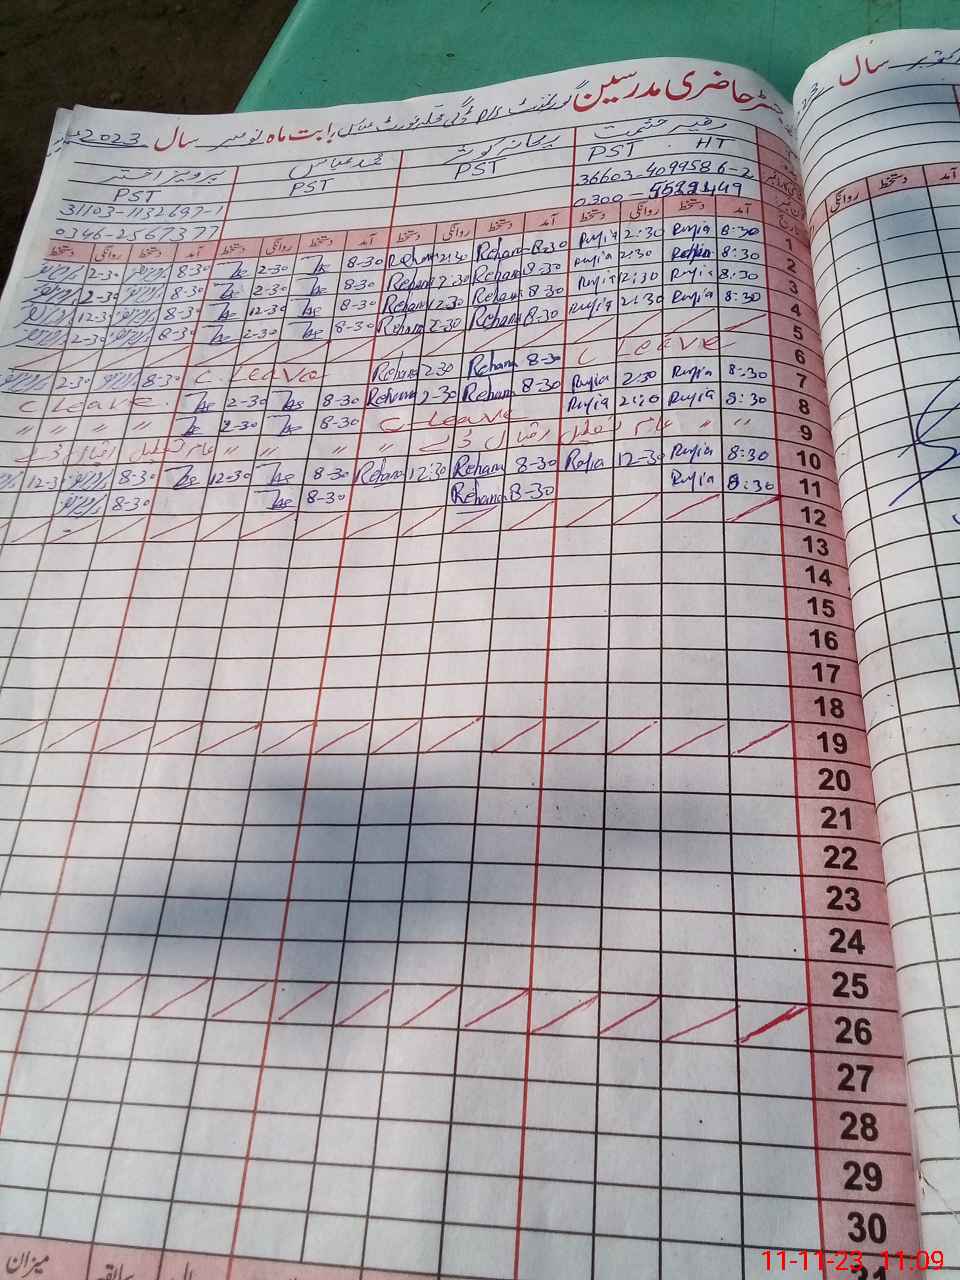 رجسٹر حاضری مدرسین گورنمنٹ P/S بابت ماہ نومبر سال 2023
سال
رقیہ حشمت ریحانہ کوثر محمد عباس پروین اختر
PST HT PST PST PST
36603-4099586-2 31103-1132697-1
0300- 0346-2567377
آمد دستخط روانگی دستخط آمد دستخط روانگی دستخط آمد دستخط روانگی دستخط آمد دستخط روانگی دستخط
آمد دستخط روانگی
1 8:30 Rujia 2:30 Rujia 8-30 Rehana 2:30 Rehana 8-30 2-30 8-30 2-30
2 8:30 2:30 Rujia 8-30 Rehana 2:30 Rehana 8-30 2-30 8-30 2-30
3 8:30 Rujia 12:30 Rujia 8-30 Rehana 12:30 Rehana 8-30 12-30 8-30 12-3
4 8:30 Rujia 2:30 Rujia 8-30 Rehana 2-30 Rehana 8-30 2-30 8-30 2-30
5
6 C Leave 8-30 Rehana 2:30 Rehana C. Leave 8-30 2-30
7 8:30 Rujia 2:30 Rujia 8-30 Rehana 2-30 Rehana 8-30 2-30 C Leave.
8 8:30 Rujia Rujia C-Leave 8-30 2-30 " " " "
9 " " عام تعطیل اقبال ڈے " " " " عام تعطیل اقبال ڈے
10 8:30 Rujia 12-30 Rujia 8-30 Rehana 12:30 Rehana 8-30 12-30 8-30 12-30
11 8:30 Rujia 8-30 Rehana 8-30 8-30
12
13
14
15
16
17
18
19
20
21
22
23
24
25
26
27
28
29
30
31
میزان سابقہ
11-11-23 11:09